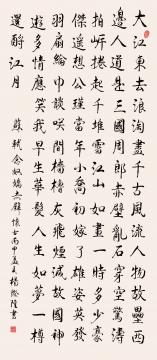 大江東去浪淘盡千古風流人物故壘西
邊人道是三國周郎赤壁亂石穿空驚濤
拍岸捲起千堆雪江山如畫一時多少豪
傑遙想公瑾當年小喬初嫁了雄姿英發
羽扇綸巾談笑間檣櫓灰飛煙滅故國神
遊多情應笑我早生華髮人生如夢一樽
還酹江月
蘇軾念奴嬌赤壁懷古丙申孟夏楊